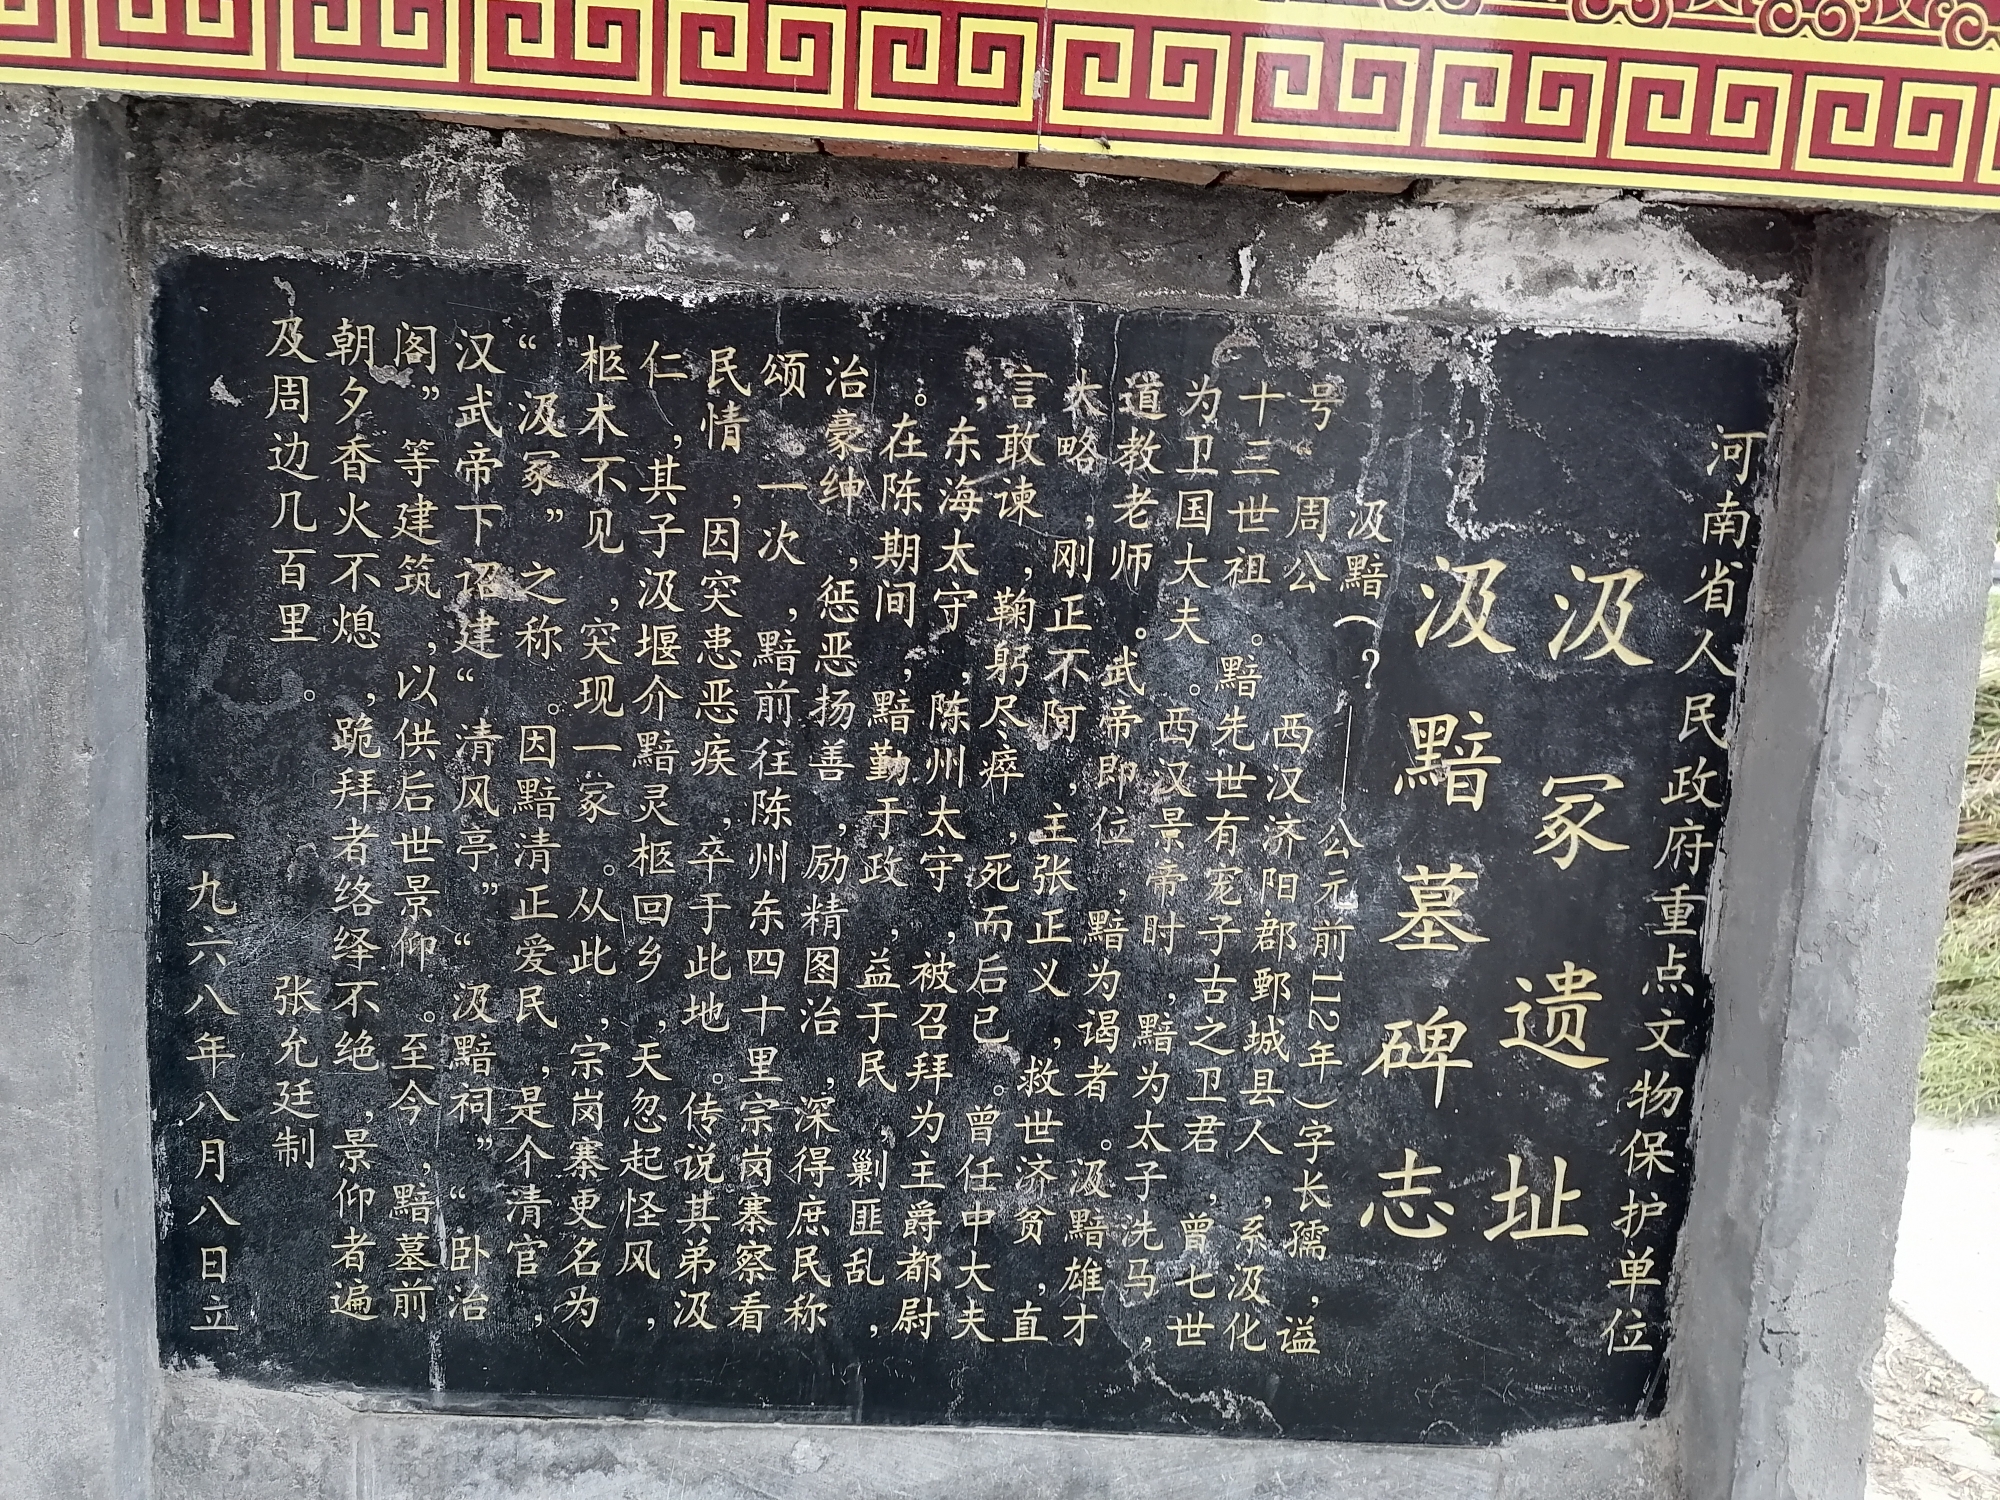 河南省人民政府重点文物保护单位
汲冢遗址
汲黯墓碑志
汲黯(?——公元前112年)字长孺,谥
号“周公 西汉济阳郡鄄城县人,系汲化
十三世祖。黯先世有宠子古之卫君,曾七世
为卫国大夫。西汉景帝时,黯为太子洗马,
道教老师。武帝即位,黯为谒者。汲黯雄才
大略,刚正不阿,主张正义,救世济贫,直
言敢谏,鞠躬尽瘁,死而后已。曾任中大夫
,东海太守,陈州太守,被召拜为主爵都尉
。在陈期间,黯勤于政,益于民 剿匪乱,
治豪绅,惩恶扬善,励精图治,深得庶民称
颂 一次,黯前往陈州东四十里宗岗寨察看
民情,因突患恶疾,卒于此地。传说其弟汲
仁,其子汲堰介黯灵柩回乡,天忽起怪风,
柩木不见,突现一冢。从此,宗岗寨更名为
“汲冢”之称。因黯清正爱民,是个清官,
汉武帝下诏建“清风亭”“汲黯祠”“卧治
阁”等建筑,以供后世景仰。至今,黯墓前
朝夕香火不熄,跪拜者络绎不绝,景仰者遍
及周边几百里。
张允廷制
一九六八年八月八日立